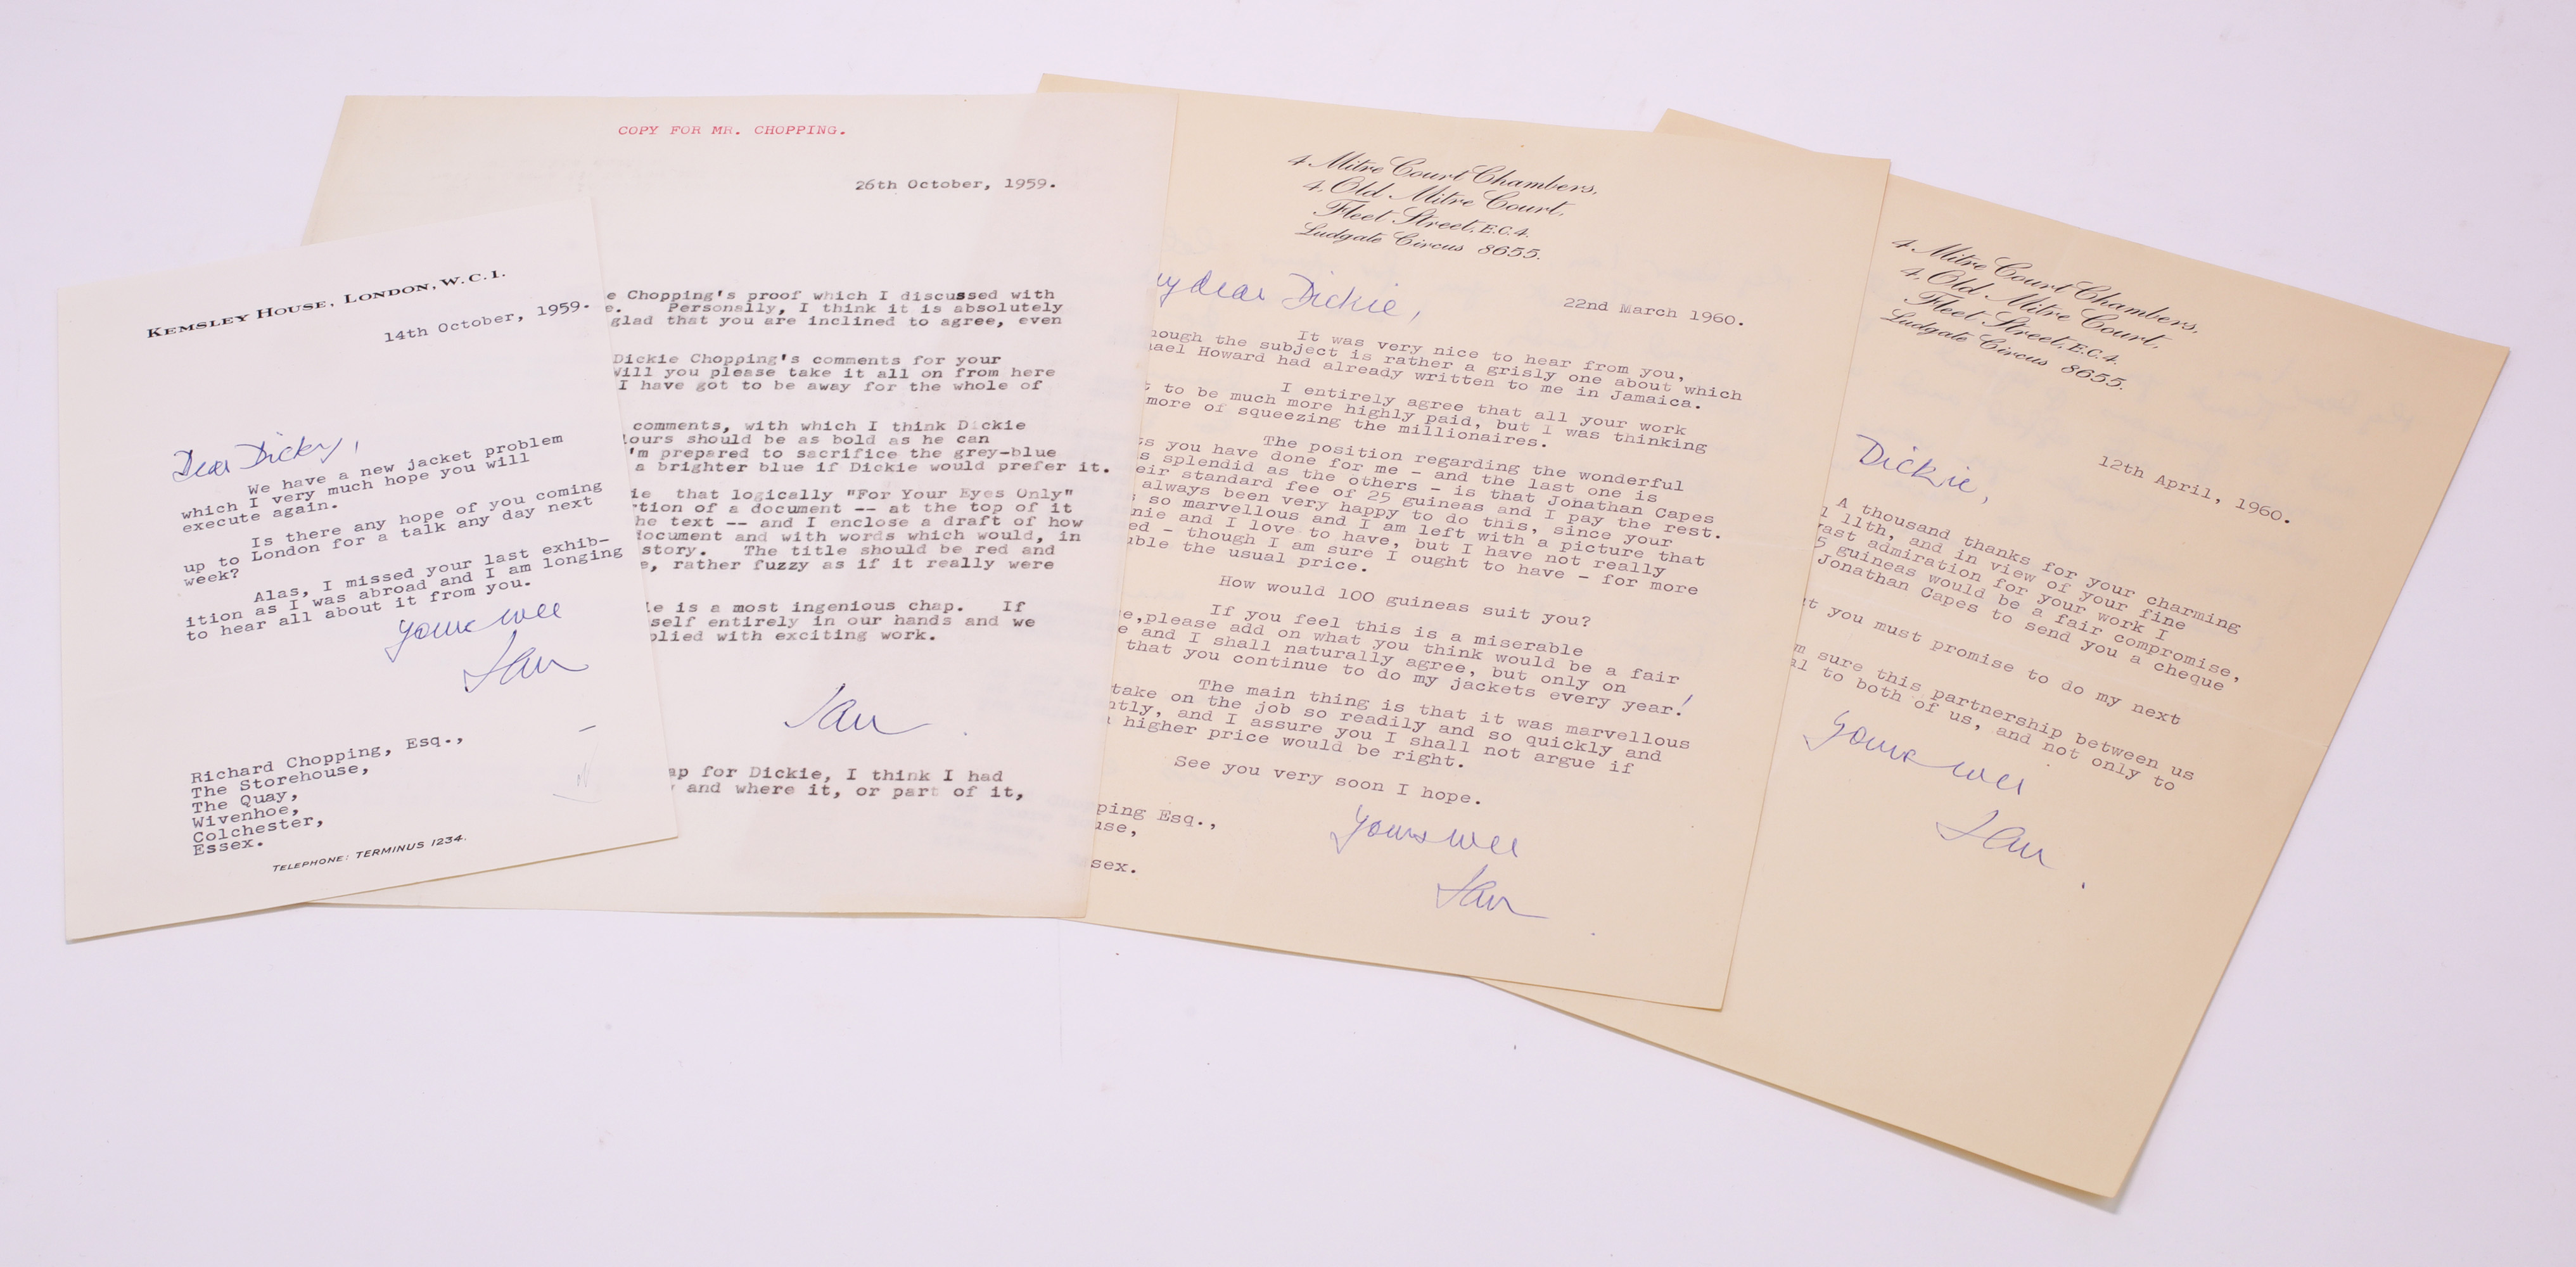 KEMSLEY HOUSE, LONDON, W.C.1.
14th October, 1959.
Dear Dicky,
We have a new jacket problem
which I very much hope you will
execute again.
Is there any hope of you coming
up to London for a talk any day next
week?
Alas, I missed your last exhib-
ition as I was abroad and I am longing
to hear all about it from you.
Yours ever
Ian
Richard Chopping, Esq.,
The Storehouse,
The Quay,
Wivenhoe,
Colchester,
Essex.
TELEPHONE: TERMINUS 1234.
COPY FOR MR. CHOPPING.
26th October, 1959.
e Chopping's proof which I discussed with
e. Personally, I think it is absolutely
glad that you are inclined to agree, even
Dickie Chopping's comments for your
Will you please take it all on from here
I have got to be away for the whole of
comments, with which I think Dickie
lours should be as bold as he can
'm prepared to sacrifice the grey-blue
a brighter blue if Dickie would prefer it.
ie that logically "For Your Eyes Only"
rtion of a document -- at the top of it
he text -- and I enclose a draft of how
document and with words which would, in
story. The title should be red and
e, rather fuzzy as if it really were
ie is a most ingenious chap. If
self entirely in our hands and we
plied with exciting work.
Ian
ap for Dickie, I think I had
y and where it, or part of it,
4 Mitre Court Chambers,
4, Old Mitre Court,
Fleet Street, E.C.4.
Ludgate Circus 8655.
22nd March 1960.
my dear Dickie,
It was very nice to hear from you,
hough the subject is rather a grisly one about which
hael Howard had already written to me in Jamaica.
I entirely agree that all your work
t to be much more highly paid, but I was thinking
more of squeezing the millionaires.
The position regarding the wonderful
ts you have done for me - and the last one is
s splendid as the others - is that Jonathan Capes
eir standard fee of 25 guineas and I pay the rest.
always been very happy to do this, since your
s so marvellous and I am left with a picture that
nie and I love to have, but I have not really
ed - though I am sure I ought to have - for more
uble the usual price.
How would 100 guineas suit you?
If you feel this is a miserable
e,please add on what you think would be a fair
e and I shall naturally agree, but only on
that you continue to do my jackets every year!
The main thing is that it was marvellous
take on the job so readily and so quickly and
ntly, and I assure you I shall not argue if
a higher price would be right.
See you very soon I hope.
Yours ever
Ian
ping Esq.,
use,
sex.
4 Mitre Court Chambers,
4, Old Mitre Court,
Fleet Street, E.C.4.
Ludgate Circus 8655.
12th April, 1960.
Dickie,
A thousand thanks for your charming
l 11th, and in view of your fine
vast admiration for your work I
5 guineas would be a fair compromise,
Jonathan Capes to send you a cheque
t you must promise to do my next
m sure this partnership between us
al to both of us, and not only to
Yours ever
Ian